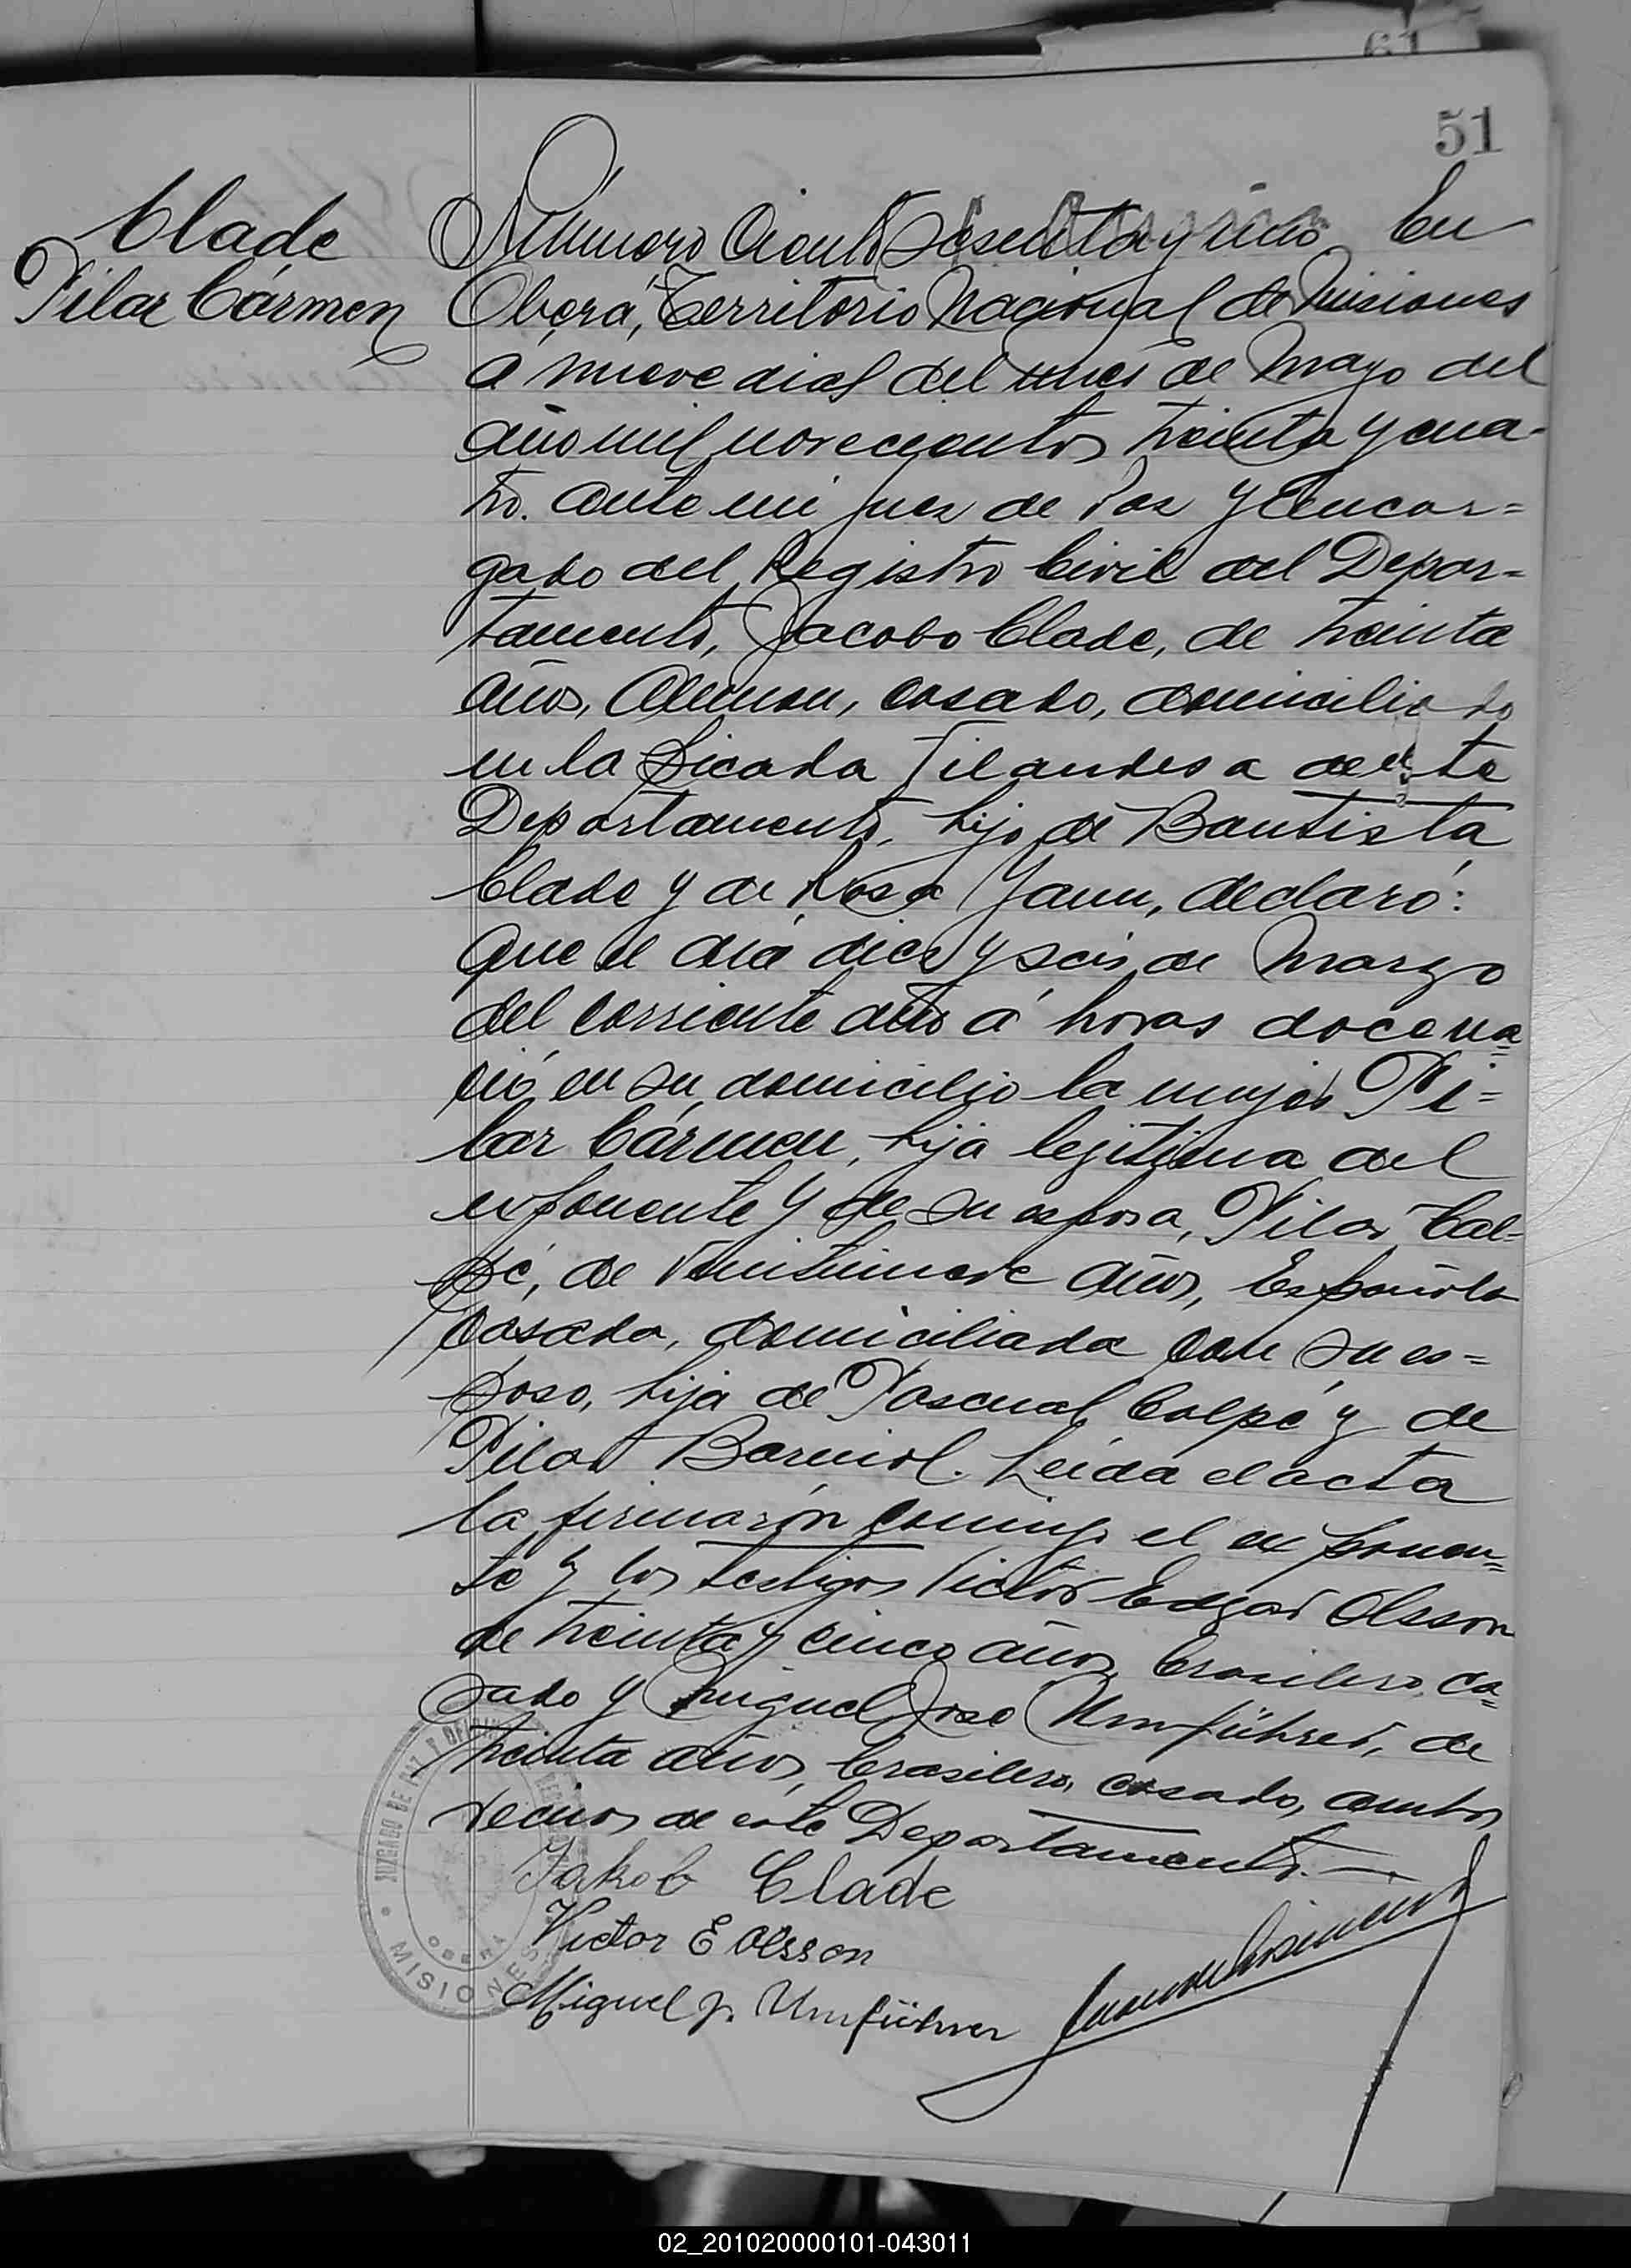 61
51
Clade
Pilar Cármen
Número Ciento Sesenta y uno. En
Oberá, Territorio Nacional de Misiones
a nueve dias del mes de Mayo del
año mil novecientos treinta y cua-
tro. ante mi Juez de Paz y Encar=
gado del Registro Civil del Depar=
tamento, Jacobo Clade, de treinta
años, Aleman, casado, domiciliado
en la Picada Filandesa de este
Departamento, hijo de Bautista
Clade y de Rosa Jann, declaró:
Que el día diez y seis de Marzo
del corriente año á horas doce na=
ció en su domicilio la mujer Pi=
lar Cármen, hija legitima del
exponente y de su esposa, Pilar Cal=
pé, de veintinueve años, Española
casada, domiciliada con su es=
poso, hija de Pascual Calpé y de
Pilar Barniol. Leida el acta
la firmarón conmigo el exponen=
te y los testigos Victor Edgar Olsson
de treinta y cinco años, brasilero, ca=
sado y Miguel José Umführer, de
treinta años, brasilero, casado, ambos
vecinos de este Departamento.—
Jakob Clade
Victor E Olsson
Miguel J. Umführer
JUZGADO DE PAZ
OBERA
MISIONES
02_201020000101-043011